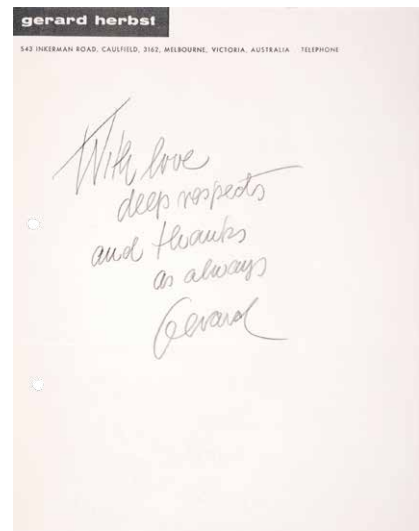 gerard herbst
543 INKERMAN ROAD, CAULFIELD, 3162, MELBOURNE, VICTORIA, AUSTRALIA . TELEPHONE
With love
deep respects
and thanks
as always
Gerard